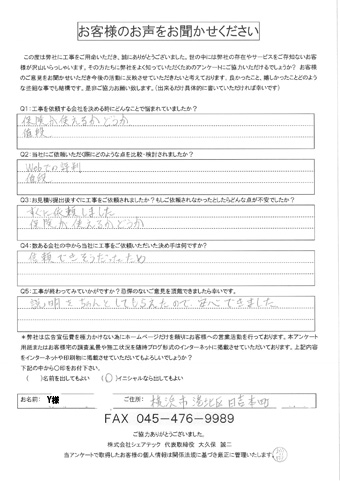 お客様のお声をお聞かせください
この度は弊社に工事をご用命いただき、誠にありがとうございました。世の中には弊社の存在やサービスをご存知ないお客
様が沢山いらっしゃいます。その方たちに弊社をよく知っていただくためのアンケートにご協力いただけるでしょうか？ お客様
のご意見をお聞かせいただき今後の活動に反映させていただきたいと考えております。良かったこと、嬉しかったことどのよう
な些細な事でも結構です。是非ご協力お願い致します。（出来るだけ具体的に書いていただければ幸いです）
Q1：工事を依頼する会社を決める時にどんなことで悩まれていましたか？
保険が使えるかどうか
値段
Q2：当社にご依頼いただく際にどのような点を比較・検討されましたか？
Webでの評判
値段
Q3：お見積り提出後すぐに工事をご依頼されましたか？もしご依頼されなかったとしたらどんな点が不安でしたか？
すぐに依頼しました
保険が使えるかどうか
Q4：数ある会社の中から当社に工事をご依頼いただいた決め手は何ですか？
信頼できそうだったため
Q5：工事が終わってみていかがですか？忌憚のないご意見を頂戴できましたら幸いです。
説明をちゃんとしてもらえたので、安心できました
＊弊社は広告宣伝費を極力かけない為にホームページだけを頼りにお客様への営業活動を行っております。本アンケート
用紙またはお客様宅の調査風景や施工状況を随時ブログ形式のインターネットに掲載させていただいております。上記内容
をインターネットや印刷物に掲載させていただいてもよろしいでしょうか？
下記の中から○印をお付下さい。
（ ）名前を出してもよい （○）イニシャルなら出してもよい
お名前： Y様 ご住所： 横浜市港北区日吉本町
FAX 045-476-9989
ご協力ありがとうございました。
株式会社シェアテック 代表取締役 大久保 誠二
当アンケートで取得したお客様の個人情報は関係法規に基づき厳正に管理いたします。